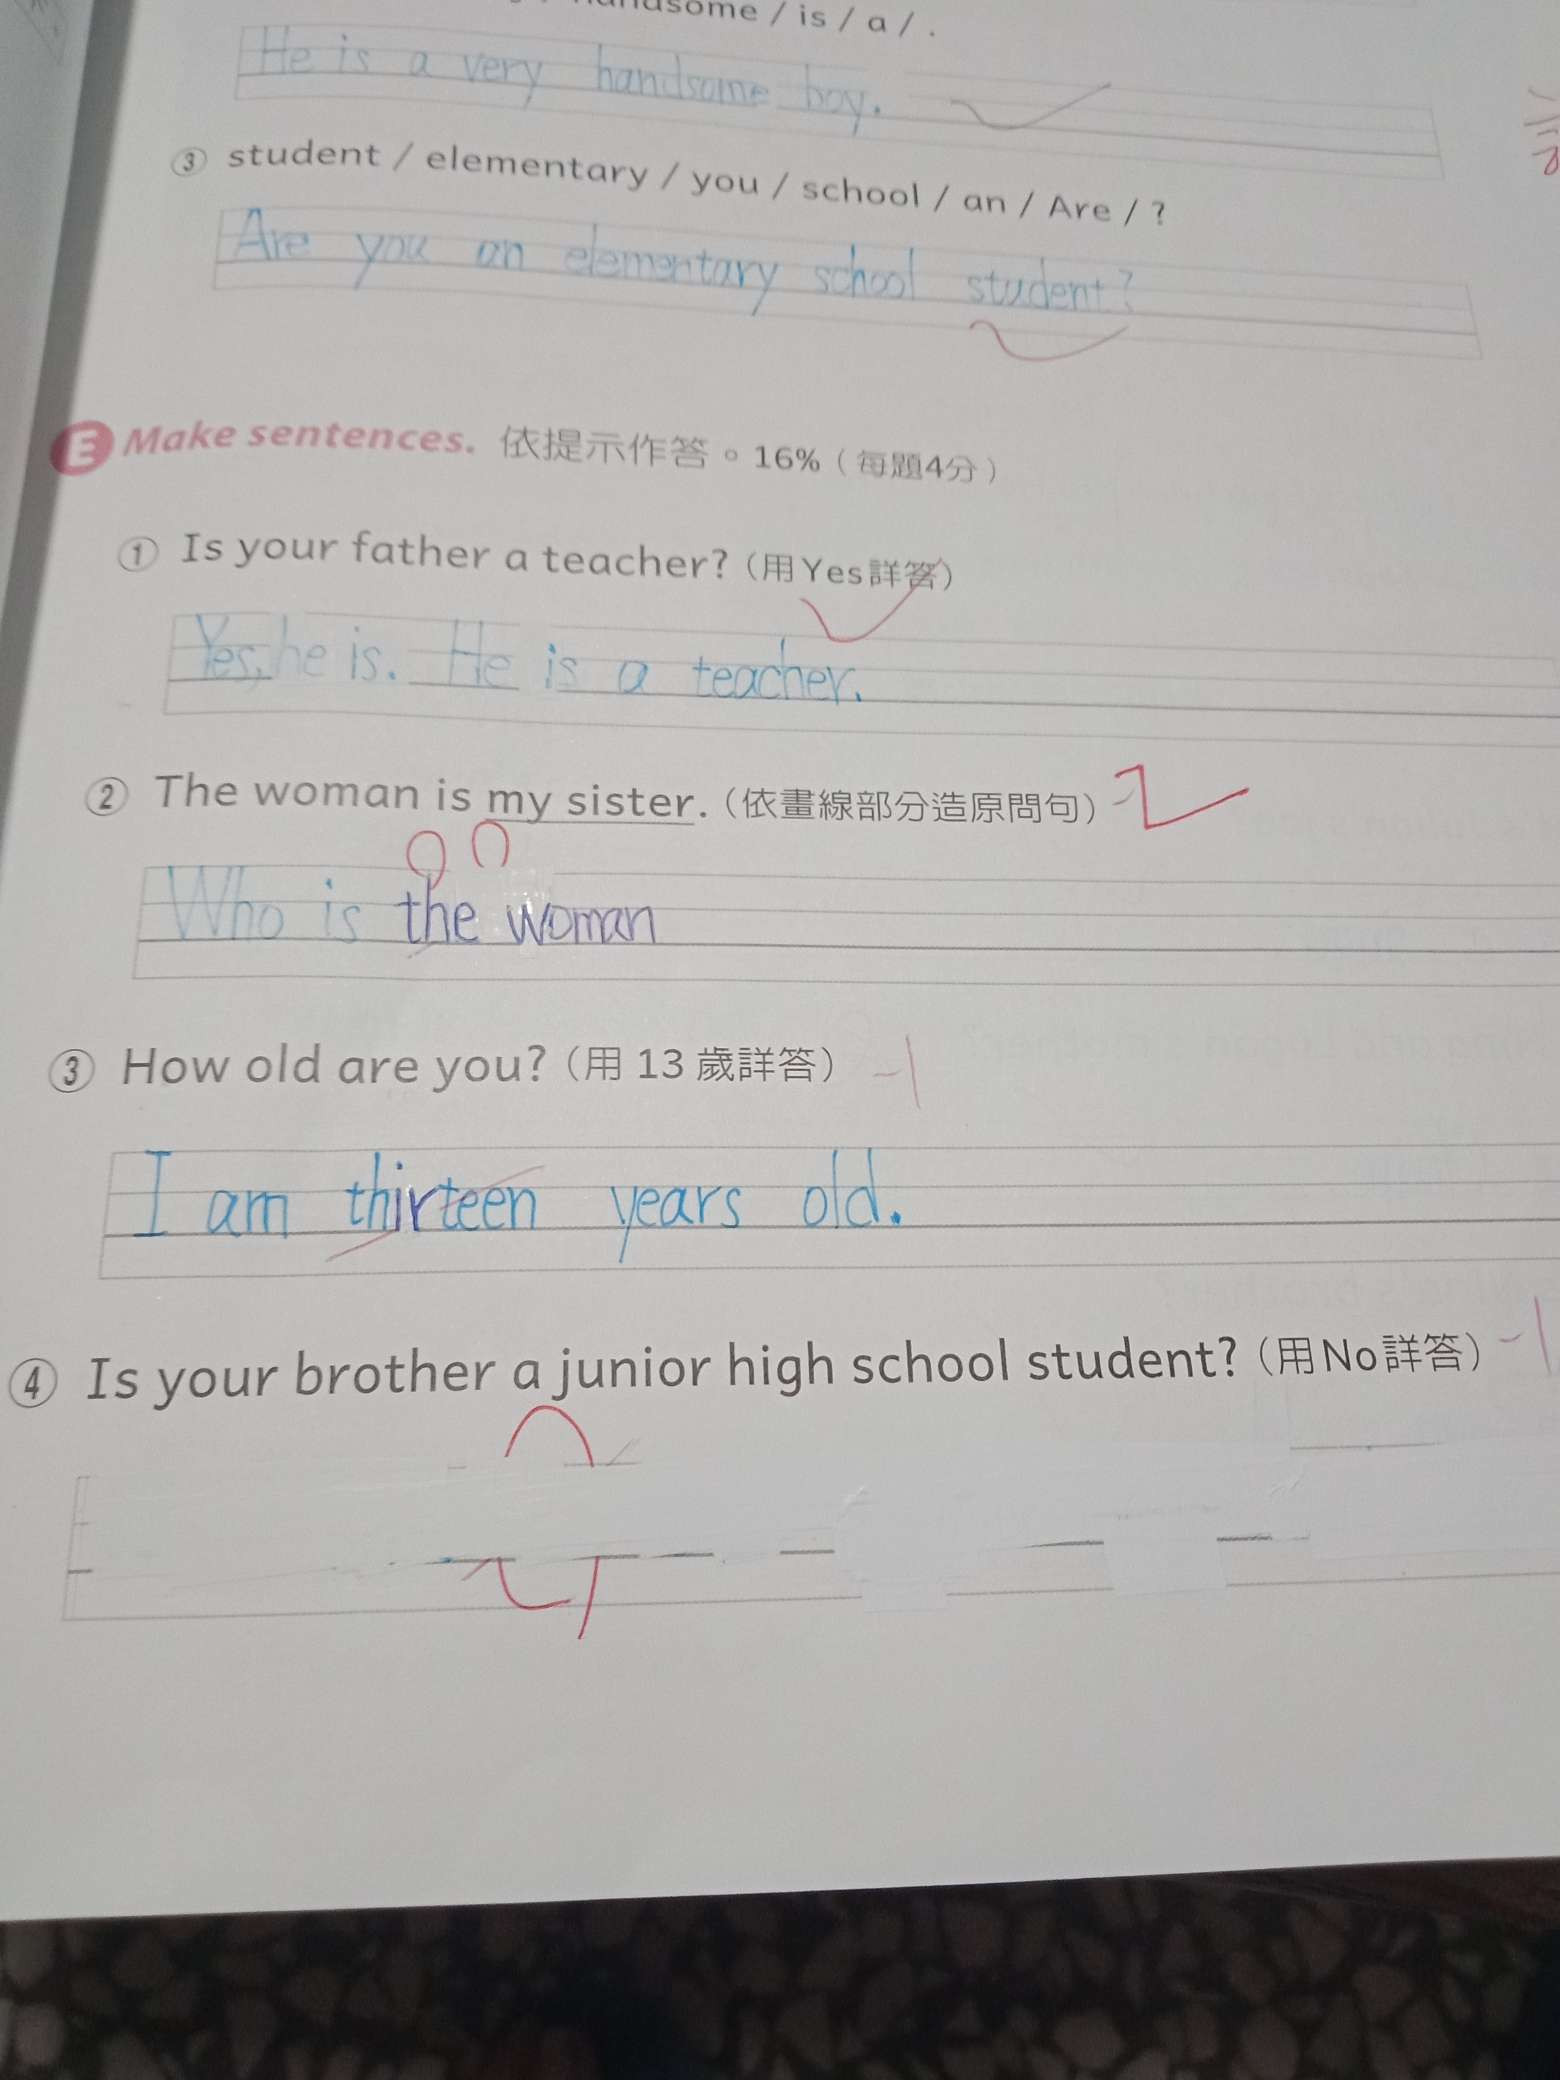 handsome / is / a / .
He is a very handsome boy.
③ student / elementary / you / school / an / Are / ?
Are you an elementary school student?
E Make sentences. 依提示作答。16%（每題4分）
① Is your father a teacher?（用Yes詳答）
Yes, he is. He is a teacher.
② The woman is my sister.（依畫線部分造原問句）
Who is the woman
③ How old are you?（用 13 歲詳答） -1
I am thirteen years old.
④ Is your brother a junior high school student?（用No詳答） -1